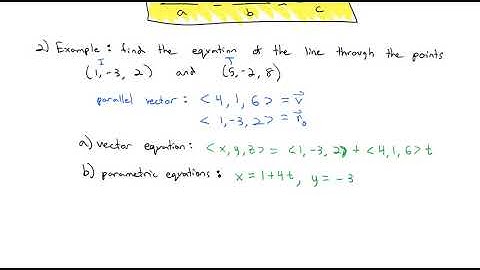 a b c
2) Example: find the equation of the line through the points
I T
(1,-3, 2) and (5,-2, 8)
parallel vector: < 4, 1, 6 > = v⃗
< 1, -3, 2 > = r⃗₀
a) vector equation: < x, y, z > = < 1, -3, 2 > + < 4, 1, 6 > t
b) parametric equations: x = 1+4t, y = -3